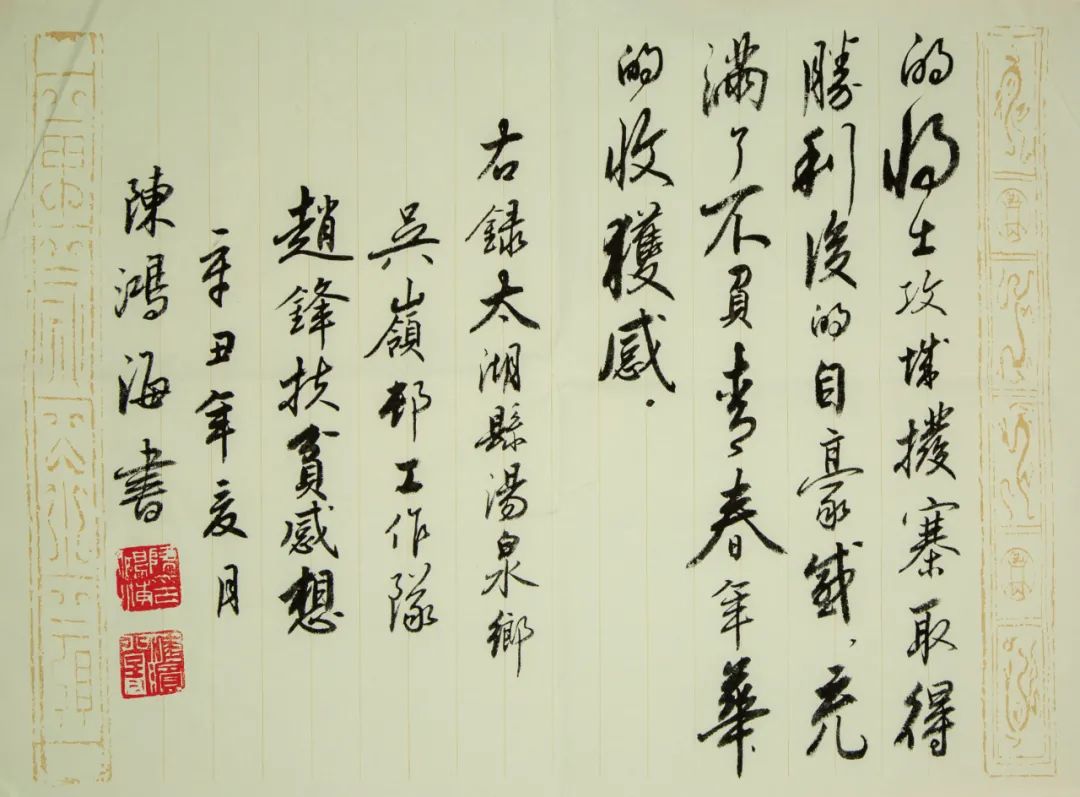 的將士攻城撥寨取得
勝利後的自豪感，充
滿了不負青春年華，
的收穫感。
右錄太湖縣湯泉鄉
吳嶺邨工作隊
趙鋒扶貧感想
辛丑年亥月
陳鴻海書